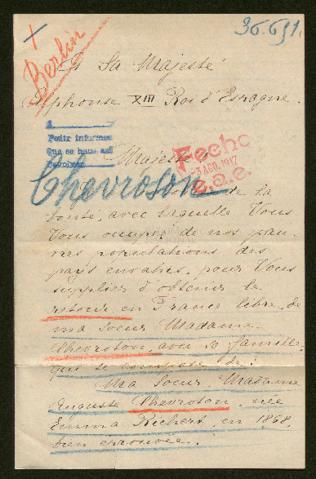 36.691
+
Berlin
A Sa Majesté
Alphonse XIII Roi d'Espagne.
Pedir informes
Que se haga así
Fecho
-3 AGO. 1917
Majesté
Chevroson
de la
bonté, avec laquelle Vous
Vous occupez de nos pau-
vres populations des
pays envahis, pour Vous
supplier d'obtenir le
retour en France libre, de
ma soeur Madame
Chevroson, avec sa famille,
qui se compose de:
Ma soeur Madame
Auguste Chevroson, née
Emma Richert, en 1868,